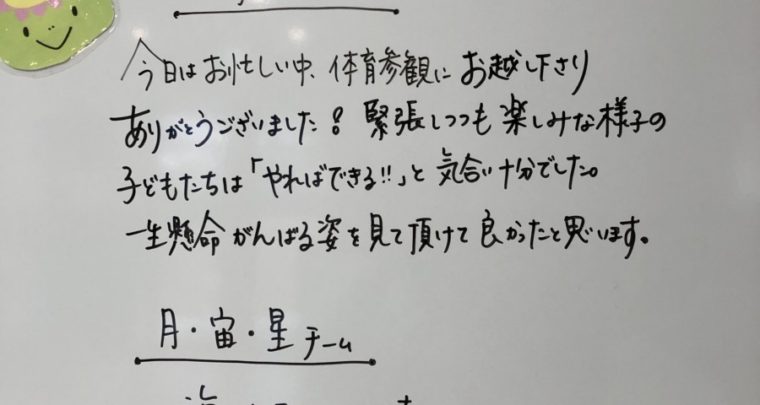 今日はお忙しい中、体育参観にお越し下さり
ありがとうございました！緊張しつつも楽しみな様子の
子どもたちは「やればできる!!」と気合い十分でした。
一生懸命がんばる姿を見て頂けて良かったと思います。
月・宙・星チーム